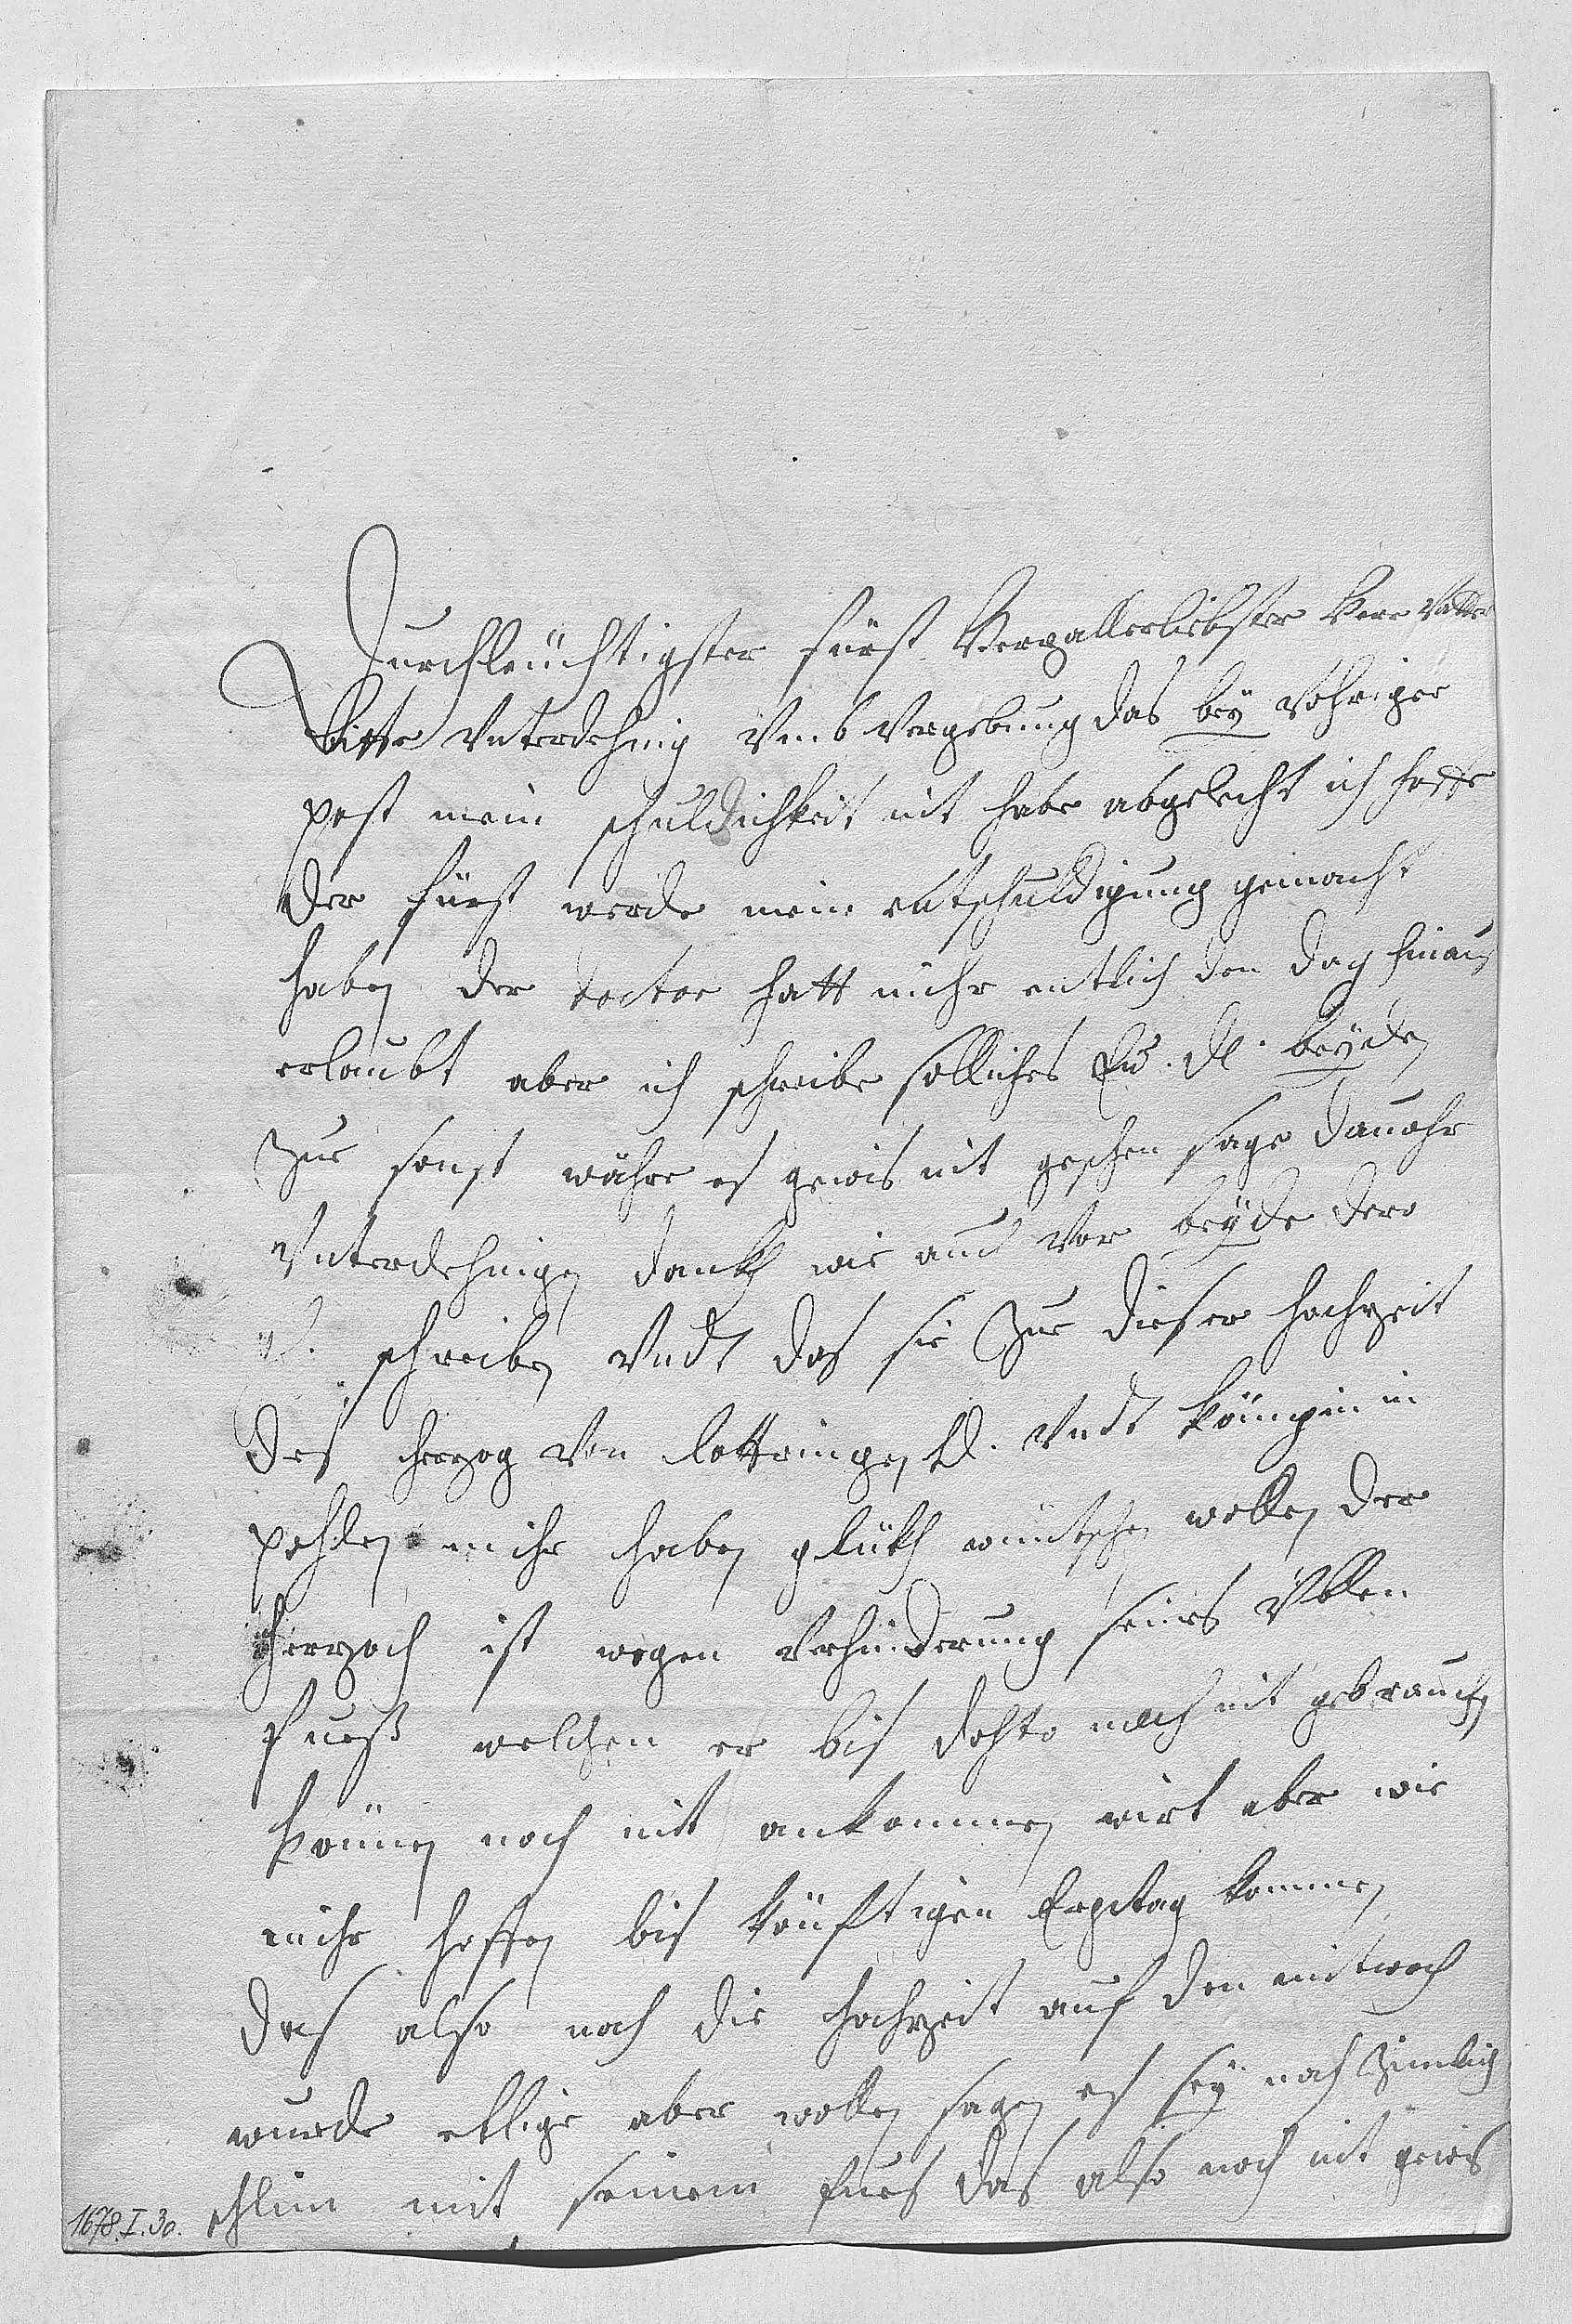 Durchleüchtigster Fürst Herzallerliebster Herr Vatter
bitte Vnterdehnig Vmb Vergebung das beÿ Vohriger
post mein schuldichkeit nit habe abgelecht ich hoffe
der Fürst werde mein entschuldigung gemacht
haben der doctor hatt mihr entlich den dag hinaus
erlaubt aber ich schreibe solliches Eu. Dl. beÿden
Zue sonst währe es gewis nit geschen sage dauohr
Vnterdehnigen dankh wie auch Vor beÿde dero
schreiben Vndt das sie Zue dieser hochzeit
des Herzog Von lottringen Ld. Vndt königin in
pohlen mihr haben glükh wüntschen wollen der
Herzoch ist wegen Verhinderung seines Vblen
fueß welchen er bis dahto noch nit gebrauchen
können noch nit ankommen wirt aber wie
mihr hoffen bis könftigen Erchtag kommen
das also noch die hochzeit auf den mitwoch
wurde ettlige aber wollen sagen es seÿ noch Zimblich
schlim mit seinem fues das also noch nit gewis
1678.I.30.